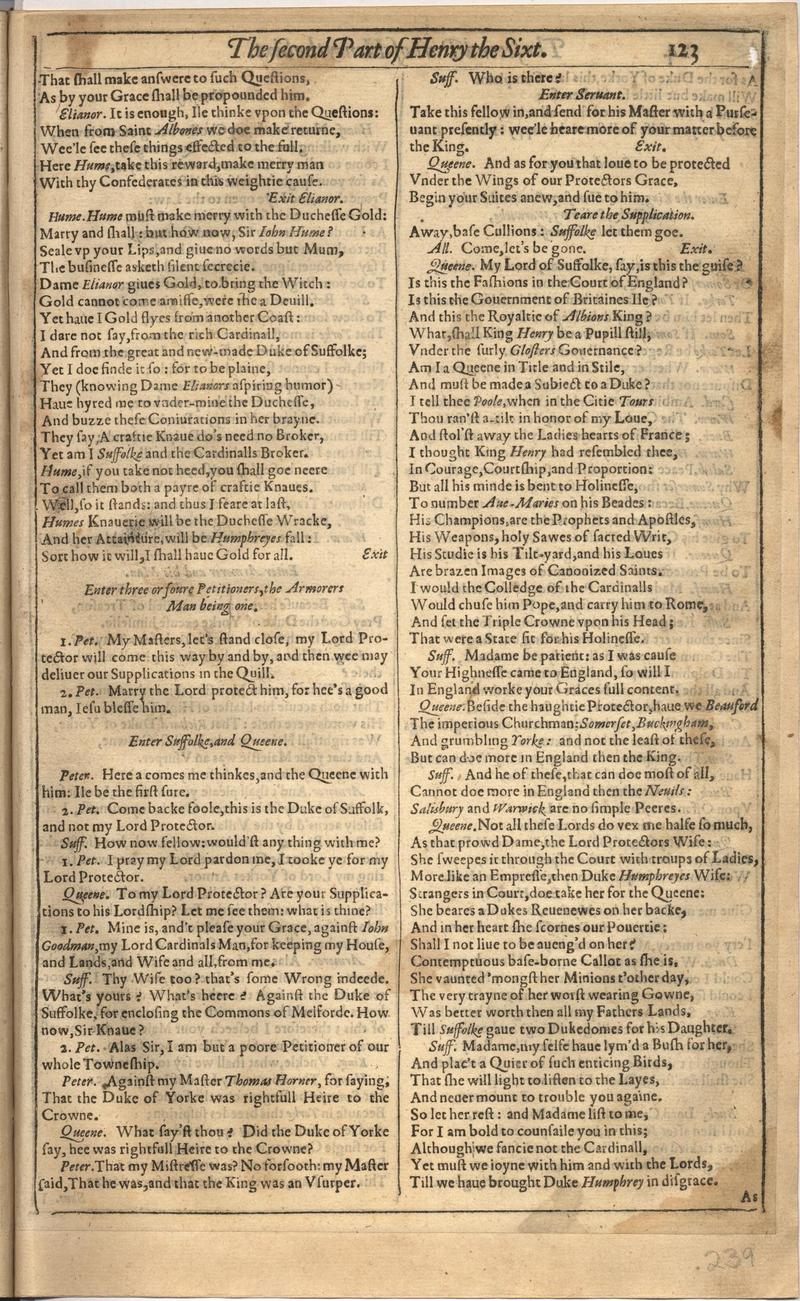 The second Part of Henry the Sixt. 123
That shall make answere to such Questions,
As by your Grace shall be propounded him.
Elianor. It is enough, Ile thinke vpon the Questions:
When from Saint Albones we doe make returne,
Wee'le see these things effected to the full.
Here Hume, take this reward, make merry man
With thy Confederates in this weightie cause.
Exit Elianor.
Hume. Hume must make merry with the Duchesse Gold:
Marry and shall: but how now, Sir Iohn Hume?
Seale vp your Lips, and giue no words but Mum,
The businesse asketh silent secrecie.
Dame Elianor giues Gold, to bring the Witch:
Gold cannot come amisse, were she a Deuill.
Yet haue I Gold flyes from another Coast:
I dare not say, from the rich Cardinall,
And from the great and new-made Duke of Suffolke;
Yet I doe finde it so: for to be plaine,
They (knowing Dame Elianors aspiring humor)
Haue hyred me to vnder-mine the Duchesse,
And buzze these Coniurations in her brayne.
They say, A craftie Knaue do's need no Broker,
Yet am I Suffolke and the Cardinalls Broker.
Hume, if you take not heed, you shall goe neere
To call them both a payre of craftie Knaues.
Well, so it stands: and thus I feare at last,
Humes Knauerie will be the Duchesse Wracke,
And her Attainture, will be Humphreyes fall:
Sort how it will, I shall haue Gold for all. Exit
Enter three or foure Petitioners, the Armorers
Man being one.
1. Pet. My Masters, let's stand close, my Lord Pro-
tector will come this way by and by, and then wee may
deliuer our Supplications in the Quill.
2. Pet. Marry the Lord protect him, for hee's a good
man, Iesu blesse him.
Enter Suffolke, and Queene.
Peter. Here a comes me thinkes, and the Queene with
him: Ile be the first sure.
2. Pet. Come backe foole, this is the Duke of Suffolk,
and not my Lord Protector.
Suff. How now fellow: would'st any thing with me?
1. Pet. I pray my Lord pardon me, I tooke ye for my
Lord Protector.
Queene. To my Lord Protector? Are your Supplica-
tions to his Lordship? Let me see them: what is thine?
1. Pet. Mine is, and't please your Grace, against Iohn
Goodman, my Lord Cardinals Man, for keeping my House,
and Lands, and Wife and all, from me.
Suff. Thy Wife too? that's some Wrong indeede.
What's yours? What's heere? Against the Duke of
Suffolke, for enclosing the Commons of Melforde. How
now, Sir Knaue?
2. Pet. Alas Sir, I am but a poore Petitioner of our
whole Towneship.
Peter. Against my Master Thomas Horner, for saying,
That the Duke of Yorke was rightfull Heire to the
Crowne.
Queene. What say'st thou? Did the Duke of Yorke
say, hee was rightfull Heire to the Crowne?
Peter. That my Mistresse was? No forsooth: my Master
said, That he was, and that the King was an Vsurper.
Suff. Who is there?
Enter Seruant.
Take this fellow in, and send for his Master with a Purse-
uant presently: wee'le heare more of your matter before
the King. Exit.
Queene. And as for you that loue to be protected
Vnder the Wings of our Protectors Grace,
Begin your Suites anew, and sue to him.
Teare the Supplication.
Away, base Cullions: Suffolke let them goe.
All. Come, let's be gone. Exit.
Queene. My Lord of Suffolke, say, is this the guise?
Is this the Fashions in the Court of England?
Is this the Gouernment of Britaines Ile?
And this the Royaltie of Albions King?
What, shall King Henry be a Pupill still,
Vnder the surly Glosters Gouernance?
Am I a Queene in Title and in Stile,
And must be made a Subiect to a Duke?
I tell thee Poole, when in the Citie Tours
Thou ran'st a-tilt in honor of my Loue,
And stol'st away the Ladies hearts of France;
I thought King Henry had resembled thee,
In Courage, Courtship, and Proportion:
But all his minde is bent to Holinesse,
To number Aue-Maries on his Beades:
His Champions, are the Prophets and Apostles,
His Weapons, holy Sawes of sacred Writ,
His Studie is his Tilt-yard, and his Loues
Are brazen Images of Canonized Saints.
I would the Colledge of the Cardinalls
Would chuse him Pope, and carry him to Rome,
And set the Triple Crowne vpon his Head;
That were a State fit for his Holinesse.
Suff. Madame be patient: as I was cause
Your Highnesse came to England, so will I
In England worke your Graces full content.
Queene. Beside the haughtie Protector, haue we Beauford
The imperious Churchman; Somerset, Buckingham,
And grumbling Yorke: and not the least of these,
But can doe more in England then the King.
Suff. And he of these, that can doe most of all,
Cannot doe more in England then the Neuils:
Salisbury and Warwick are no simple Peeres.
Queene. Not all these Lords do vex me halfe so much,
As that prowd Dame, the Lord Protectors Wife:
She sweepes it through the Court with troups of Ladies,
More like an Empresse, then Duke Humphreyes Wife:
Strangers in Court, doe take her for the Queene:
She beares a Dukes Reuenewes on her backe,
And in her heart she scornes our Pouertie:
Shall I not liue to be aueng'd on her?
Contemptuous base-borne Callot as she is,
She vaunted 'mongst her Minions t'other day,
The very trayne of her worst wearing Gowne,
Was better worth then all my Fathers Lands,
Till Suffolke gaue two Dukedomes for his Daughter.
Suff. Madame, my selfe haue lym'd a Bush for her,
And plac't a Quier of such enticing Birds,
That she will light to listen to the Layes,
And neuer mount to trouble you againe.
So let her rest: and Madame list to me,
For I am bold to counsaile you in this;
Although we fancie not the Cardinall,
Yet must we ioyne with him and with the Lords,
Till we haue brought Duke Humphrey in disgrace.
As
239